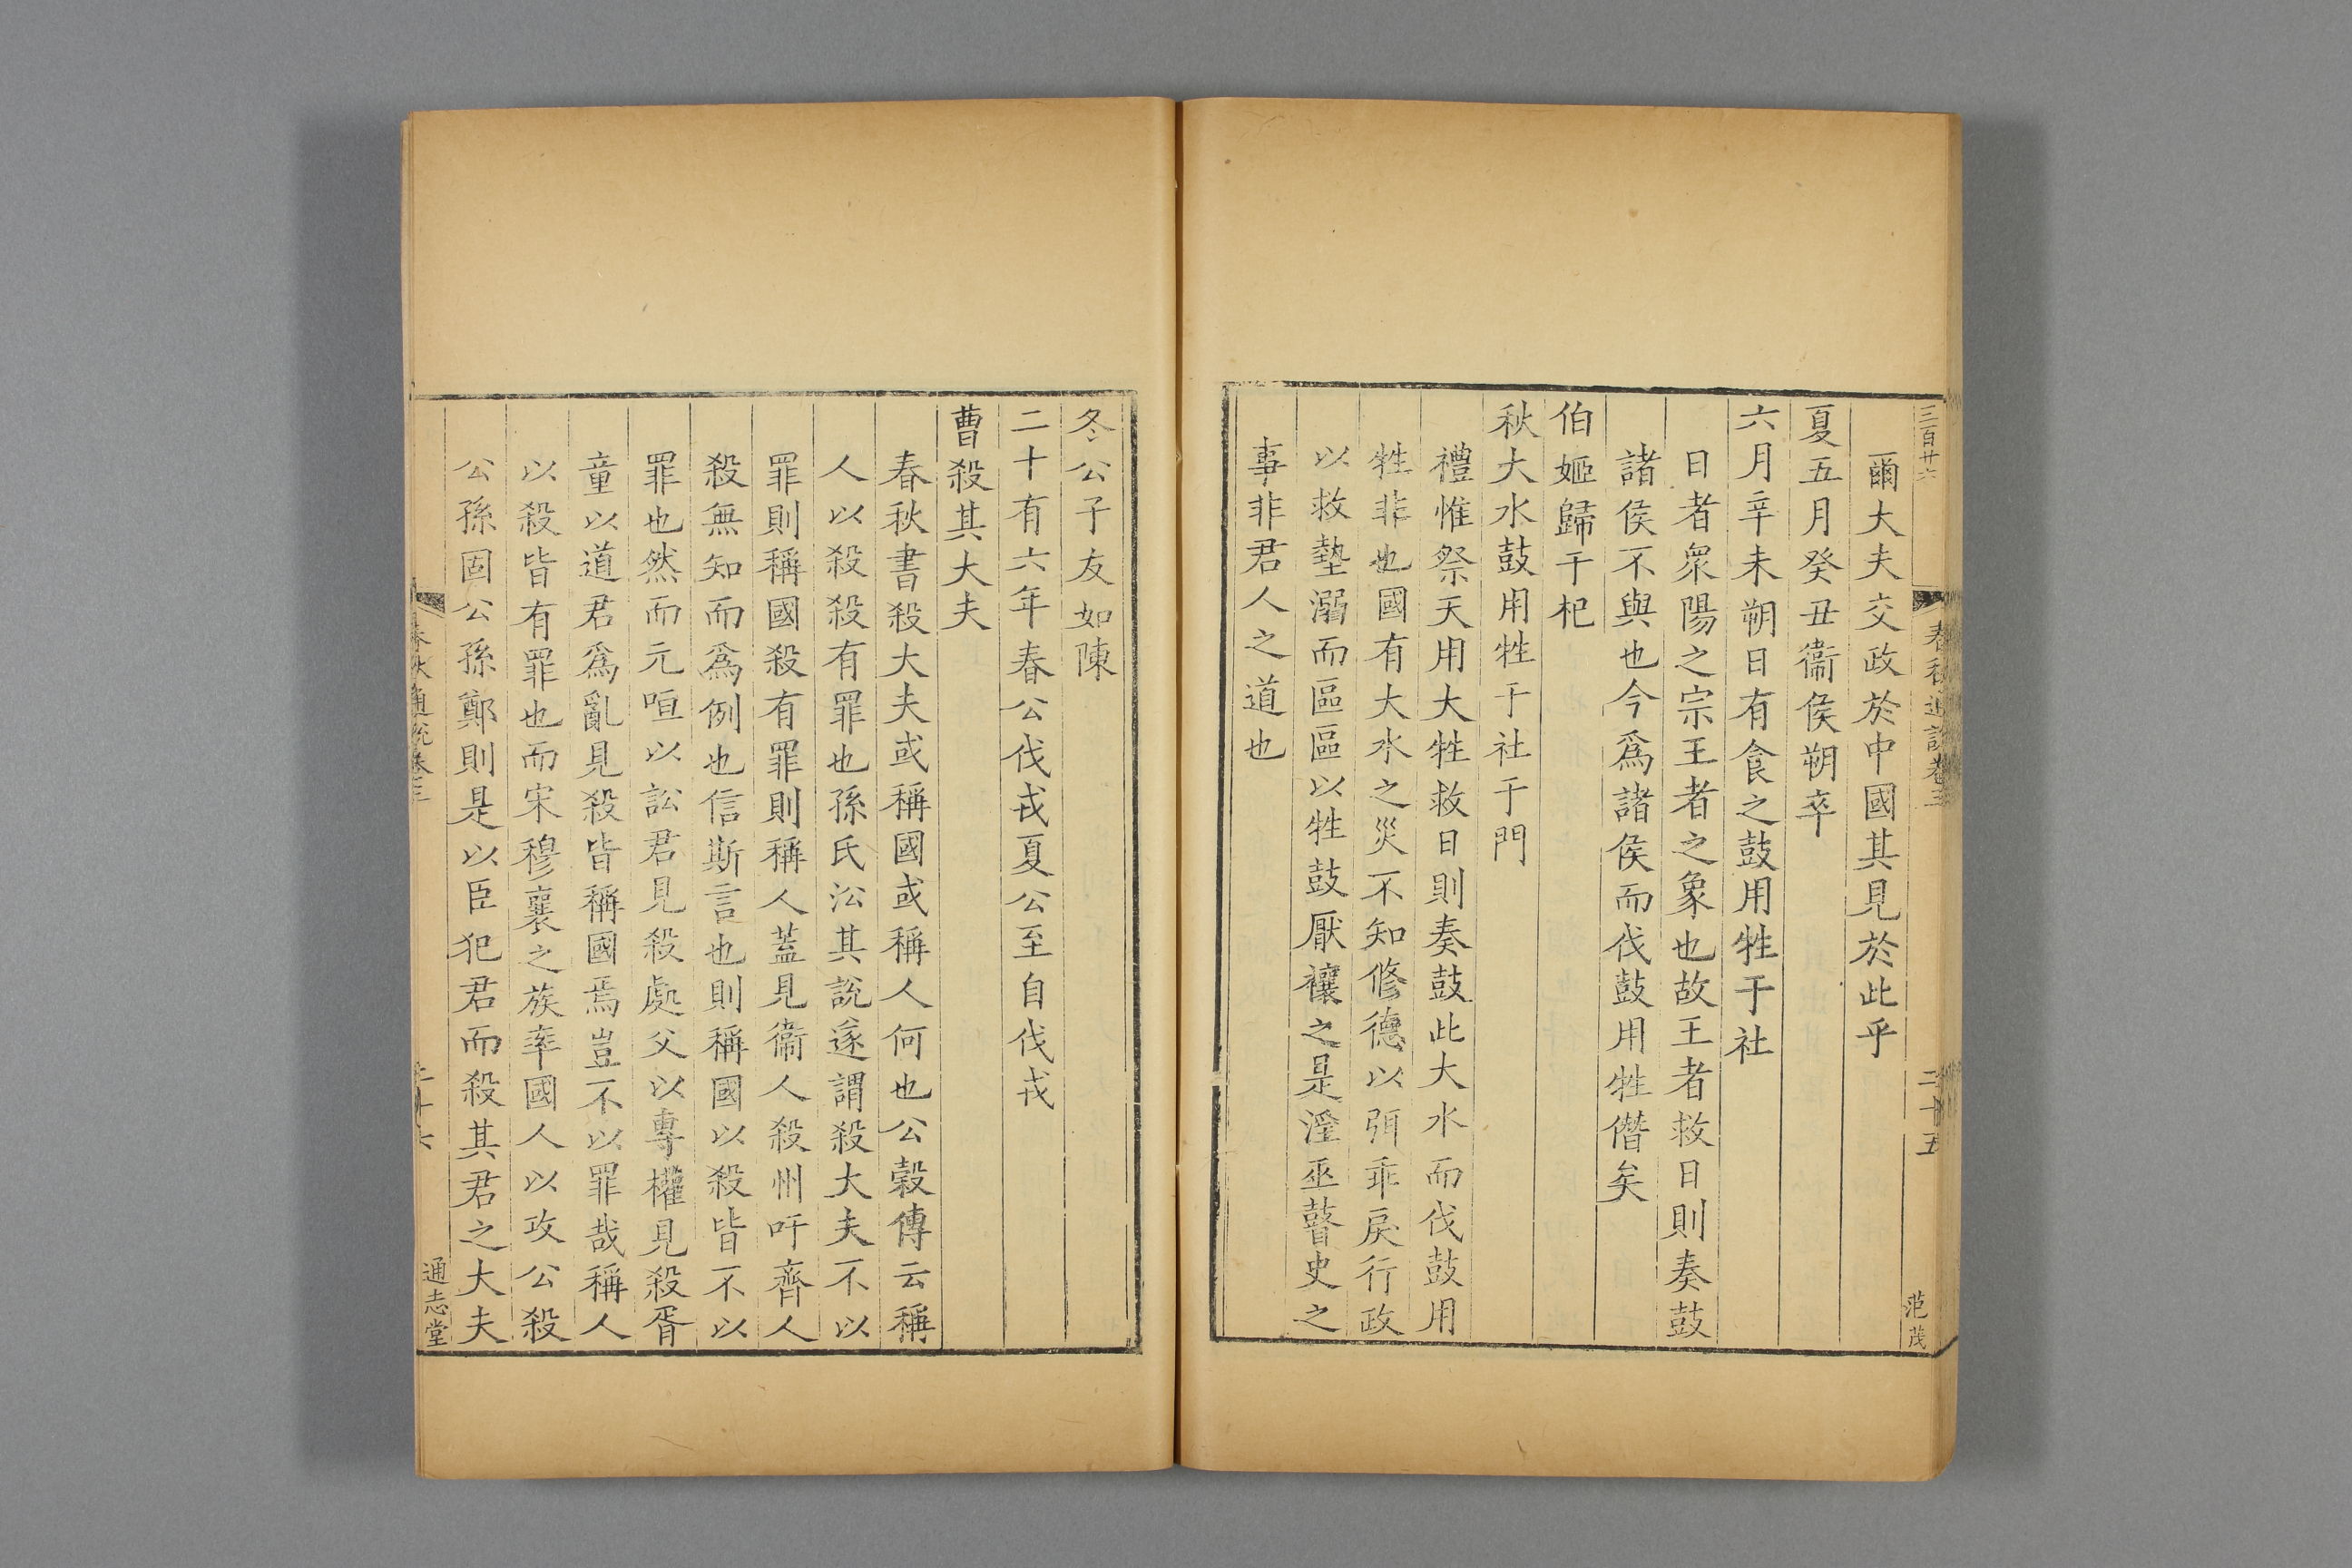 三百廿六
春秋通說卷三
二十五
范茂
爾大夫交政於中國其見於此乎
夏五月癸丑衞侯朔卒
六月辛未朔日有食之鼓用牲于社
日者衆陽之宗王者之象也故王者救日則奏鼓
諸侯不與也今爲諸侯而伐鼓用牲僭矣
伯姬歸于杞
秋大水鼓用牲于社于門
禮惟祭天用大牲救日則奏鼓此大水而伐鼓用
牲非也國有大水之災不知修德以弭乖戾行政
以救墊溺而區區以牲鼓厭禳之是滛巫瞽史之
事非君人之道也
冬公子友如陳
二十有六年春公伐戎夏公至自伐戎
曹殺其大夫
春秋書殺大夫或稱國或稱人何也公穀傳云稱
人以殺殺有罪也孫氏㳂其說遂謂殺大夫不以
罪則稱國殺有罪則稱人蓋見衞人殺州吁齊人
殺無知而爲例也信斯言也則稱國以殺皆不以
罪也然而元咺以訟君見殺處父以專權見殺胥
童以道君爲亂見殺皆稱國焉豈不以罪哉稱人
以殺皆有罪也而宋穆襄之族率國人以攻公殺
公孫固公孫鄭則是以臣犯君而殺其君之大夫
春秋通說卷三
二十六
通志堂